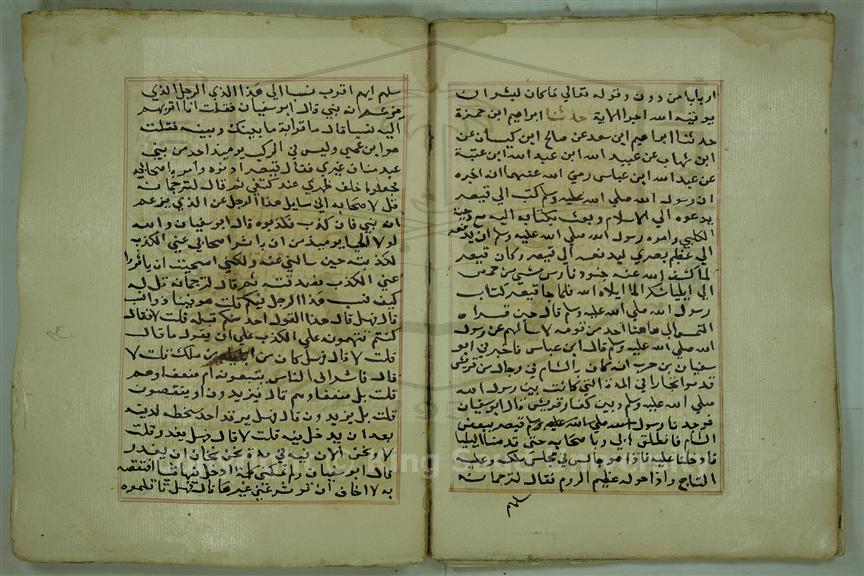 اربابا من دون وقوله تعالي ما كان لبشر ان
يوتيه الله اجر الاية حدثنا ابراهيم ابن حمزة
حدثنا ابراهيم ابن سعد عن صالح ابن كيسان عن
ابن شهاب عن عبيد الله ابن عبد الله ابن عتبة
عن عبد الله ابن عباس رضي الله عنهما انه اخبره
ان رسول الله صلي الله عليه وسلم كتب الي قيصر
يدعوه الي الاسلام وبعث بكتابه اليه مع دحية
الكلبي وامره رسول الله صلي الله عليه وسلم ان يدفعه
الي عظيم بصري ليدفعه الي قيصر وكان قيصر
لما كشف الله عنه جنود فارس مشي من حمص
الي ايلياء شكرا لما ابلاه الله فلما جا قيصر كتاب
رسول الله صلي الله عليه وسلم قال حين قراه
التمسوا لي هاهنا احد من قومه لاسالهم عن رسول
الله صلي الله عليه وسلم قال ابن عباس فاخبرني ابو
سفيان بن حرب انه كان بالشام في رجال من قريش
قدموا تجارا في المدة التي كانت بين رسول الله
صلي الله عليه وسلم وبين كفار قريش قال ابو سفيان
فوجدنا رسول قيصر ببعض
الشام فانطلق بي وباصحابه حتي قدمنا ايليا
فادخلنا عليه فاذا هو جالس في مجلس ملكه وعليه
التاج واذا حوله عظيم الروم فقال لترجمانه
سلهم
سلهم ايهم اقرب نسبا الي هذا الرجل الذي
يزعم انه نبي قال ابو سفيان فقلت انا اقربهم
اليه نسبا قال ما قرابة ما بينك وبينه فقلت
هو ابن عمي وليس في الركب يوميذ احد من بني
عبد مناف غيري فقال قيصر ادنوه وامر باصحابي
فجعلوا خلف ظهري عند كتفي ثم قال لترجمانه
قل لاصحابه اني سايل هذا الرجل عن الذي يزعم
انه نبي فان كذب فكذبوه قال ابو سفيان والله
لولا الحيا يوميذ من ان ياثر اصحابي عني الكذب
لكذبته حين سالني عنه ولكني استحييت ان ياثروا
عني الكذب فصدقته ثم قال لترجمانه قل له
كيف نسب هذا الرجل فيكم قلت هو فينا ذو نسب
قال فهل قال هذا القول احد منكم قبله قلت لا فقال
كنتم تتهمونه علي الكذب قبل ان يقول ما قال
قلت لا قال فهل كان من ابايه من ملك قلت لا
قال فاشراف الناس يتبعونه ام ضعفاوهم
قلت بل ضعفاوهم قال فيزيدون او ينقصون
قلت بل يزيدون قال فهل يرتد احد سخطه لدينه
بعد ان يدخل فيه قلت لا قال فهل يغدر قلت
لا ونحن الان منه في مدة نحن نخاف ان يغدر
قال ابو سفيان ولم تمكني كلمة ادخل فيها شيا انتقصه
به لا اخاف ان توثر عني غيرها قال فهل قاتلتموه